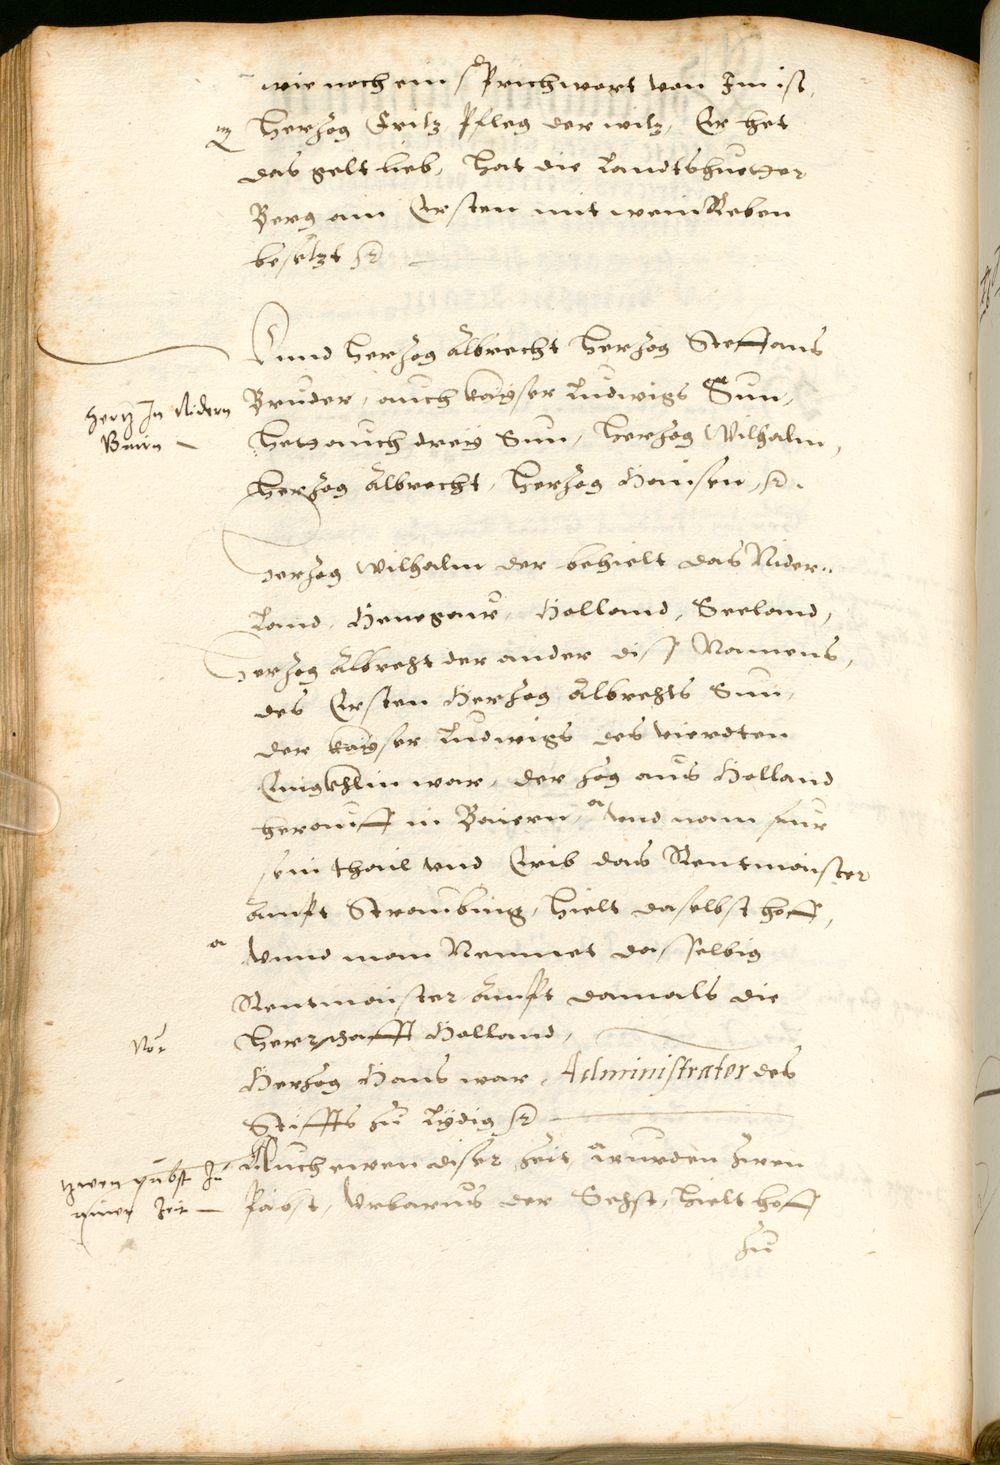 wie noch ein sprichwort von Im ist,
Herzog Fritz pfleg der witz, Er het
das gelt lieb, Hat die Landtshuetter
Berg am Ersten mit wein Reben
besetzt
Vnnd Herzog Albrecht Herzog Steffans
Bruder, auch kayser Ludwigs Sun,
Het auch drey Sun, Herzog Wilhalm,
Herzog Albrecht, Herzog Hansen,
Hertz In Nidern
Bairn
Herzog Wilhalm der behielt das Nider-
Land, Henegaw, Holland, Seeland,
Herzog Albrecht der ander diss Namens,
des Ersten Herzog Albrechts Sun,
der kayser Ludwigs des vierdten
Enigkhlin war, der zog aus Holland
herauff in Baiern, vnd nam fur
sein thail vnd Erib das Rentmaister
Ampt Straubing, Hielt daselbst hoff,
Vnnd man Nennet dasselbig
Rentmaister Ampt damals die
Herrschafft Holland,
Herzog Hans war, Administrator des
Stiffts zu Lydig
Auch ewen diser Zeit wurden zwen
Pabst, Vrbanus der Sechst, Hielt hoff
zwen pabst zu
ainer Zeit
zu